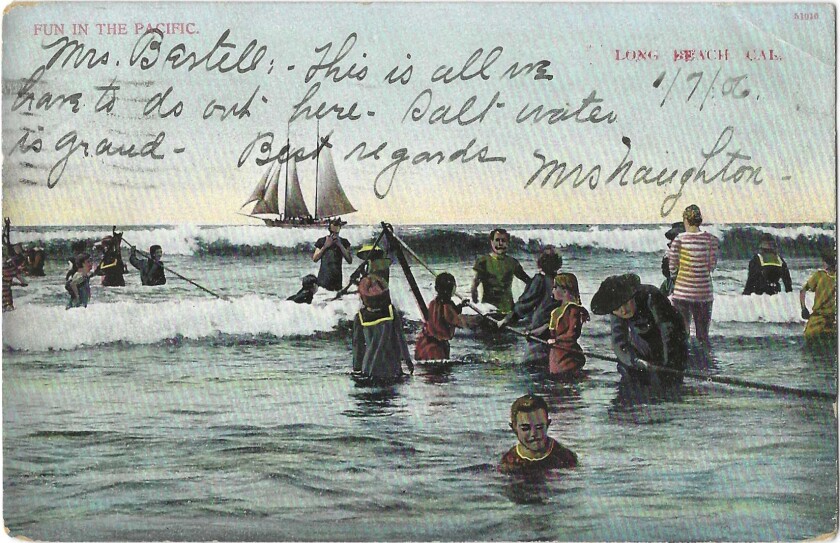 51016
FUN IN THE PACIFIC.
LONG BEACH CAL.
Mrs. Bestell; - This is all we
have to do out here - Salt water 1/7/06.
is grand - Best regards
Mrs Naughton -